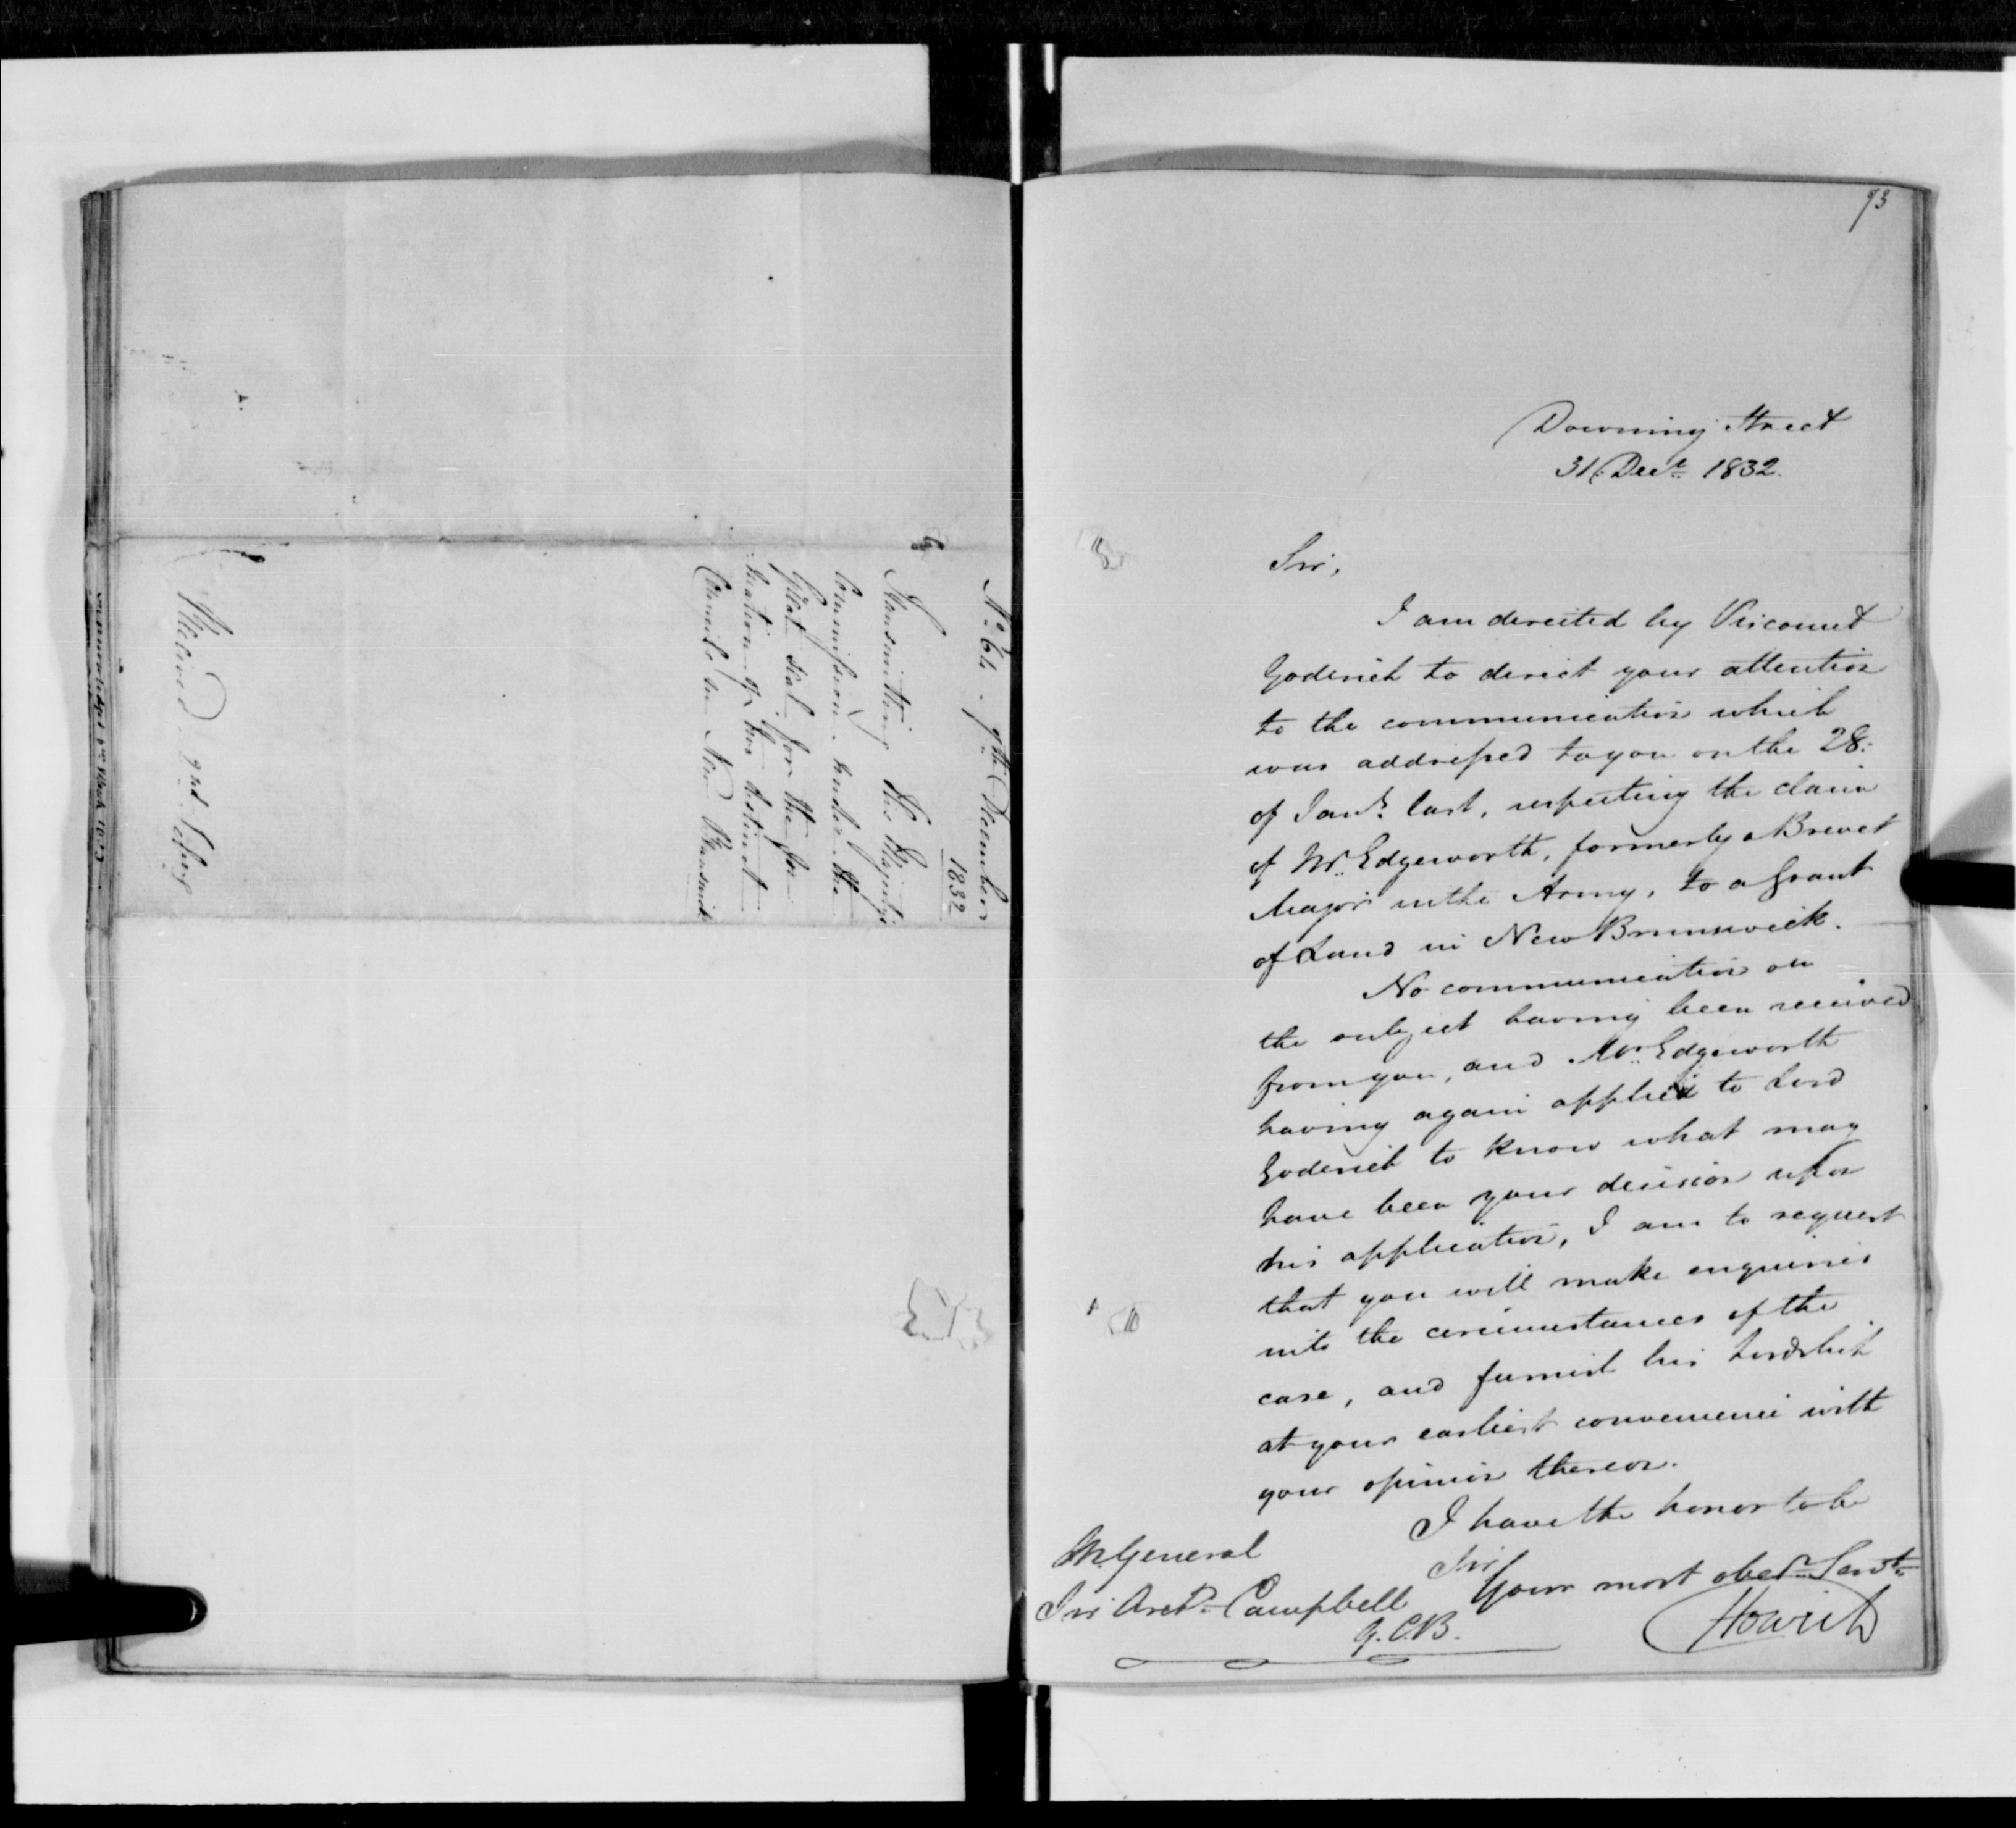 No. 64. 9th December
1832
Transmitting His Majesty's
Commission under the
Great Seal for the for-
mation of two distinct
Councils in New Brunswick
Received 2nd Feby
93
Downing Street
31 Decr. 1832.
Sir,
I am directed by Viscount
Goderich to direct your attention
to the communication which
was addressed to you on the 28.
of Jany. last, respecting the claim
of Mr. Edgeworth, formerly a Brevet
Major in the Army, to a Grant
of Land in New Brunswick.
No communication on
the subject having been received
from you, and Mr. Edgeworth
having again applied to Lord
Goderich to know what may
have been your decision upon
his application, I am to request
that you will make enquiries
into the circumstances of the
case, and furnish his Lordship
at your earliest convenience with
your opinion thereon.
I have the honor to be
Sir
Your most obedt. Servt.
Howick
M. General
Sir Archd. Campbell
G.C.B.